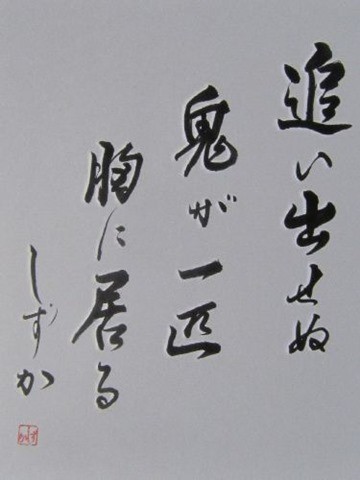 追い出せぬ
鬼が一匹
胸に居る
しずか